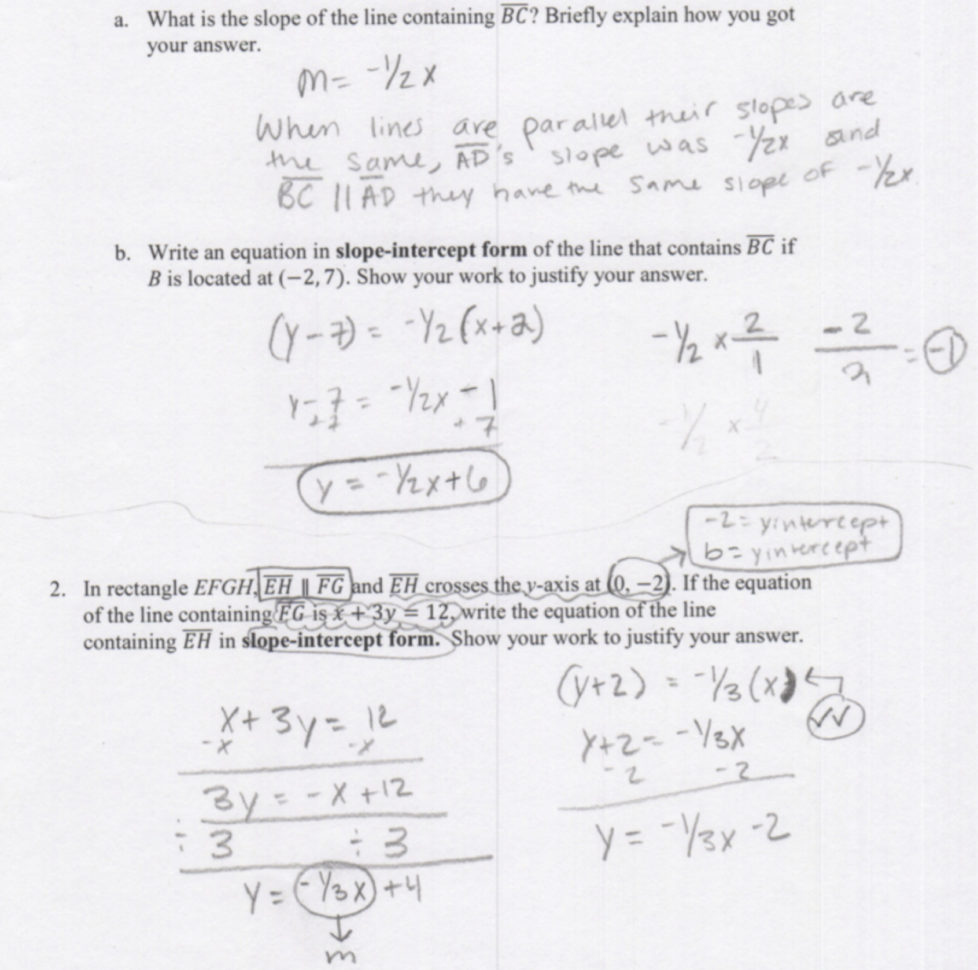 a. What is the slope of the line containing BC? Briefly explain how you got
your answer.
m= -1/2 x
When lines are parallel their slopes are
the same, AD's slope was -1/2x and
BC || AD they have the same slope of -1/2x.
b. Write an equation in slope-intercept form of the line that contains BC if
B is located at (−2, 7). Show your work to justify your answer.
(y-7) = -1/2 (x+2)
-1/2 x 2/1 -2/2 = -1
y-7 = -1/2x -1
+7 +7
-1/2 x 4/2
y = -1/2x+6
-2= yintercept
b= yintercept
2. In rectangle EFGH, EH ∥ FG and EH crosses the y-axis at (0, −2). If the equation
of the line containing FG is x + 3y = 12, write the equation of the line
containing EH in slope-intercept form. Show your work to justify your answer.
(y+2) = -1/3 (x)
x+ 3y= 12
-x -x
y+2= -1/3x
-2 -2
3y = -x +12
÷3 ÷3
y= -1/3x -2
y= -1/3x +4
m